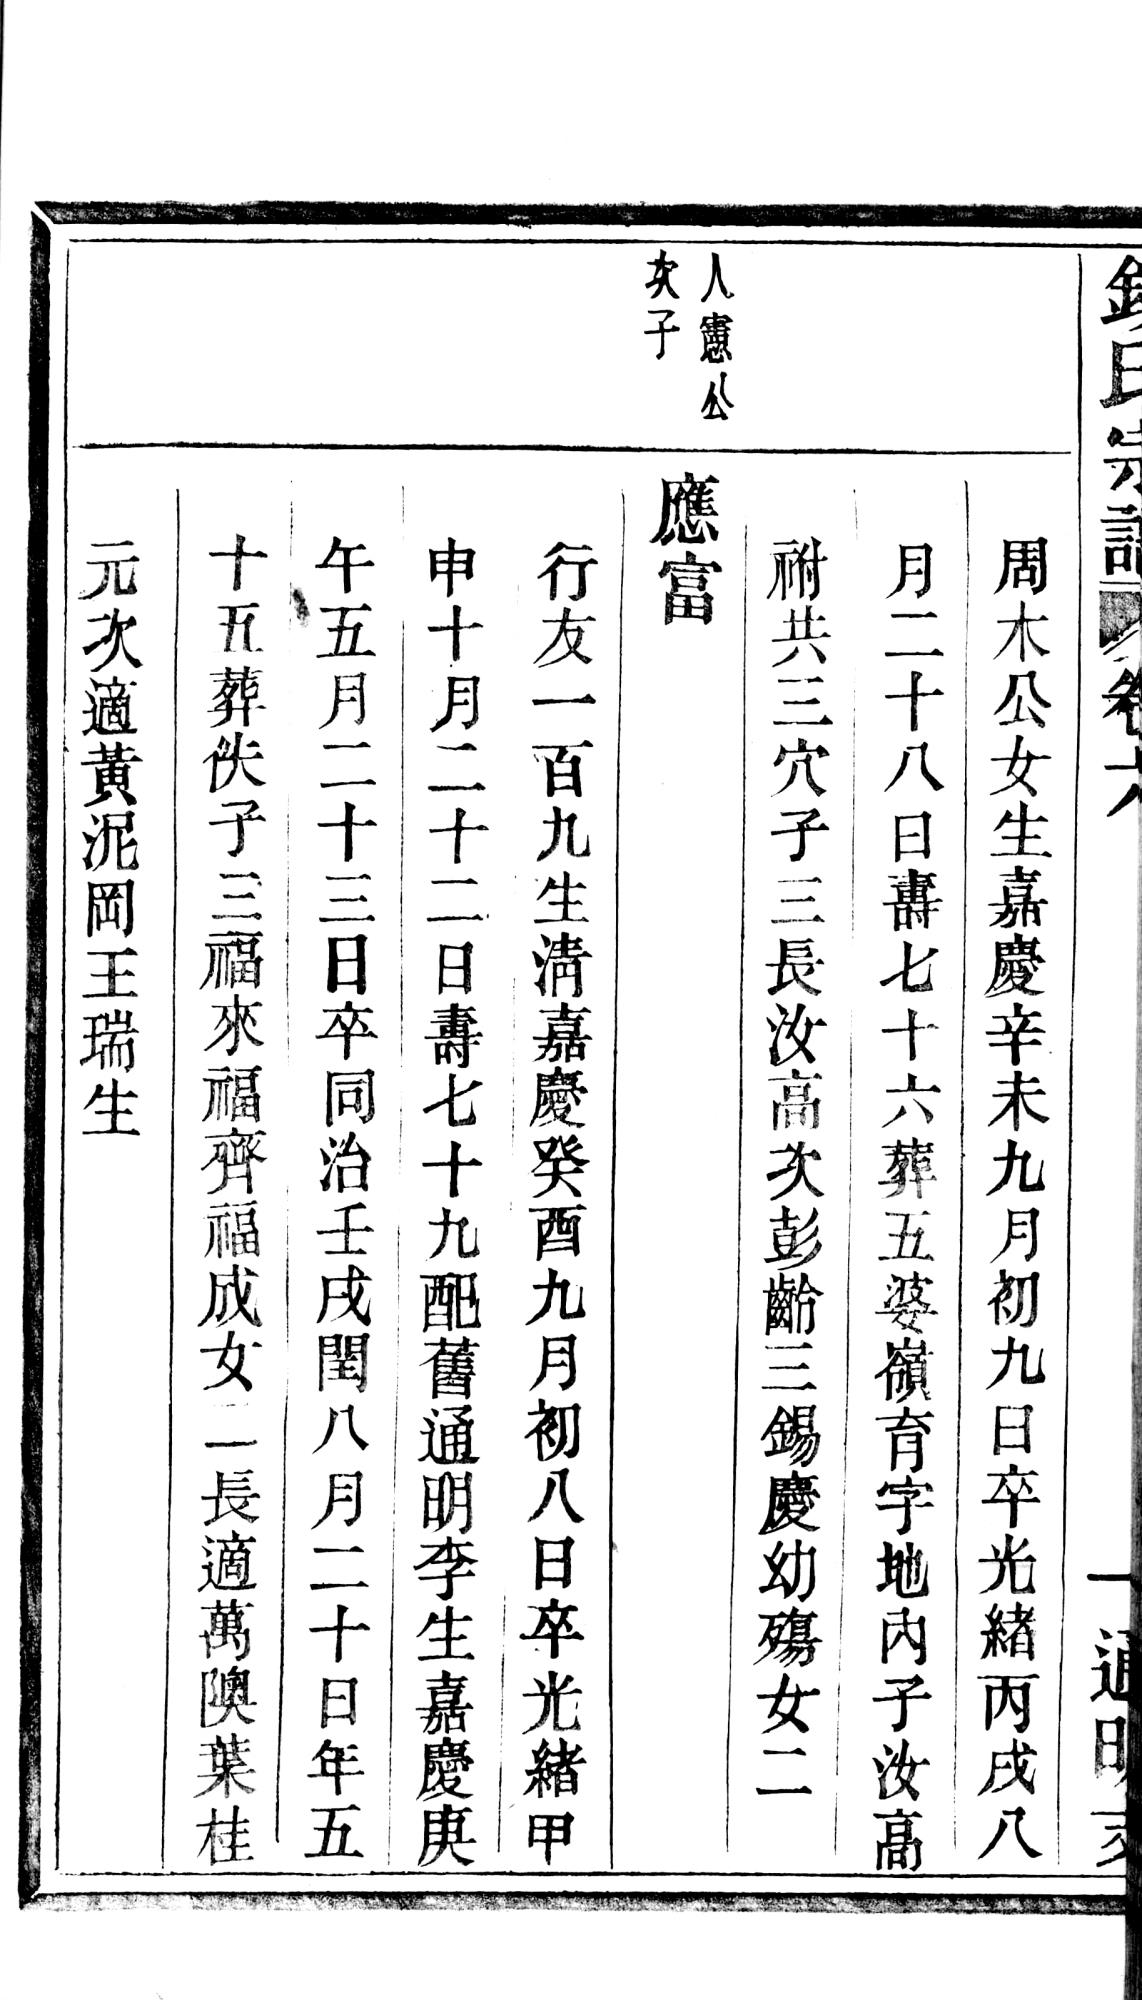 錢氏宗譜 卷六 一 通明
周木公女生嘉慶辛未九月初九日卒光緒丙戌八
月二十八日壽七十六葬五婆嶺育字地內子汝高
祔共三穴子三長汝高次彭齡三錫慶幼殤女二
人憲公
次子
應富
行友一百九生清嘉慶癸酉九月初八日卒光緒甲
申十月二十二日壽七十九配舊通明李生嘉慶庚
午五月二十三日卒同治壬戌閏八月二十日年五
十五葬佚子三福來福齊福成女二長適萬隩葉桂
元次適黃泥岡王瑞生